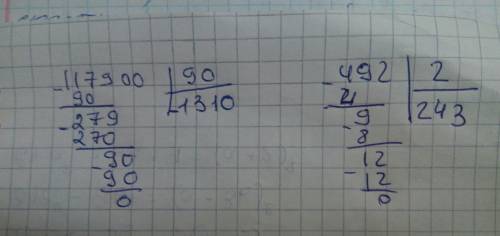 -117900 | 90
90 | 1310
-279
270
-90
90
0
-492 | 2
4 | 243
-9
8
12
-12
0